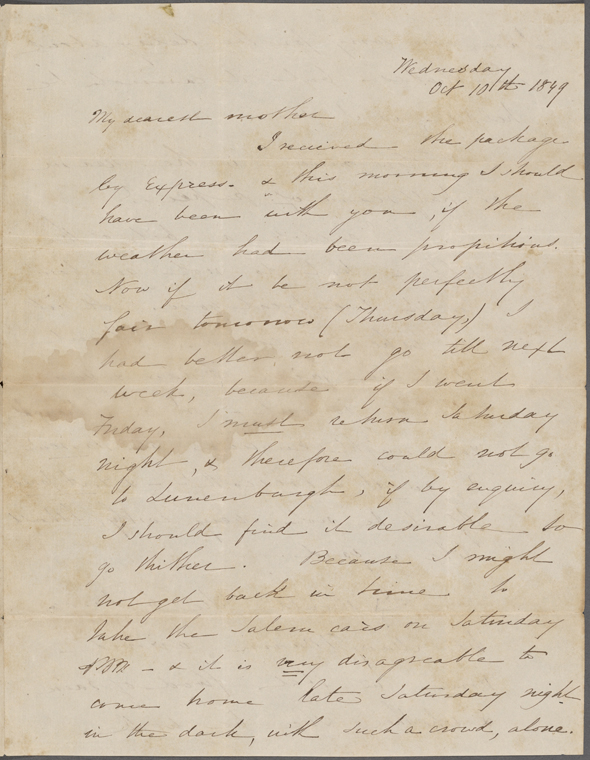 Wednesday
Oct 10th 1849
My dearest mother
I received the package
by Express. & this morning I should
have been with you, if the
weather had been propitious.
Now if it be not perfectly
fair tomorrow (Thursday,) I
had better not go till next
week, because if I went
Friday, I must return Saturday
night, & therefore could not go
to Lunenburgh, if by enquiry,
I should find it desirable to
go thither. Because I might
not get back in time to
take the Salem cars on Saturday
P.M. – & it is very disagreable to
come home late Saturday night
in the dark, with such a crowd, alone.